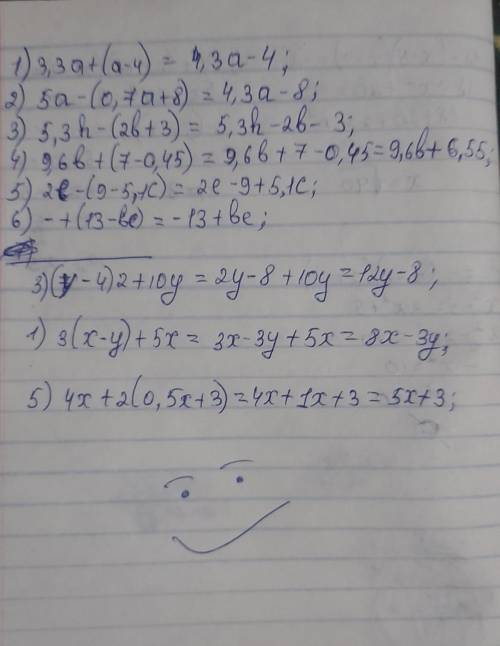 1) 3,3a+(a-4) = 4,3a-4;
2) 5a-(0,7a+8) = 4,3a-8;
3) 5,3h-(2b+3) = 5,3h-2b-3;
4) 9,6b+(7-0,45)=9,6b+7-0,45=9,6b+6,55;
5) 2c-(9-5,1c)=2c-9+5,1c;
6) -+(13-bc)=-13+bc;
3)(y-4)2+10y=2y-8+10y=12y-8;
1) 3(x-y)+5x= 3x-3y+5x=8x-3y;
5) 4x+2(0,5x+3)=4x+1x+3=5x+3;